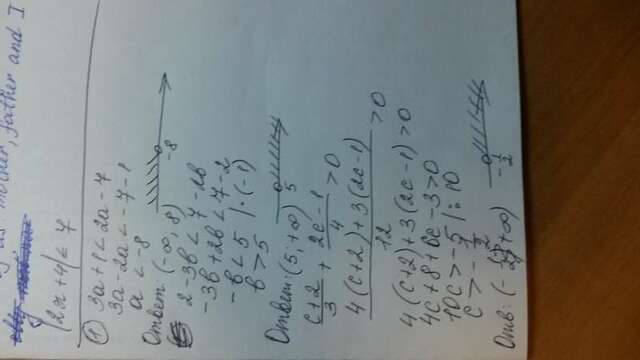 as mother, father and I
|2x+4| < 7
① 3a+1<2a-7
3a-2a<-7-1
a<-8
-8
Ответ: (-∞, 8)
2-3b<7-2b
-3b+2b<7-2
-b<5 |·(-1)
b>5
5
Ответ: (5; +∞)
c+2/3 + 2c-1/4 >0
4(c+2)+3(2c-1)/12 >0
4(c+2)+3(2c-1)>0
4c+8+6c-3>0
10c>-5 |:10
c>-1/2
-1/2
Отв: (-1/2; +∞)